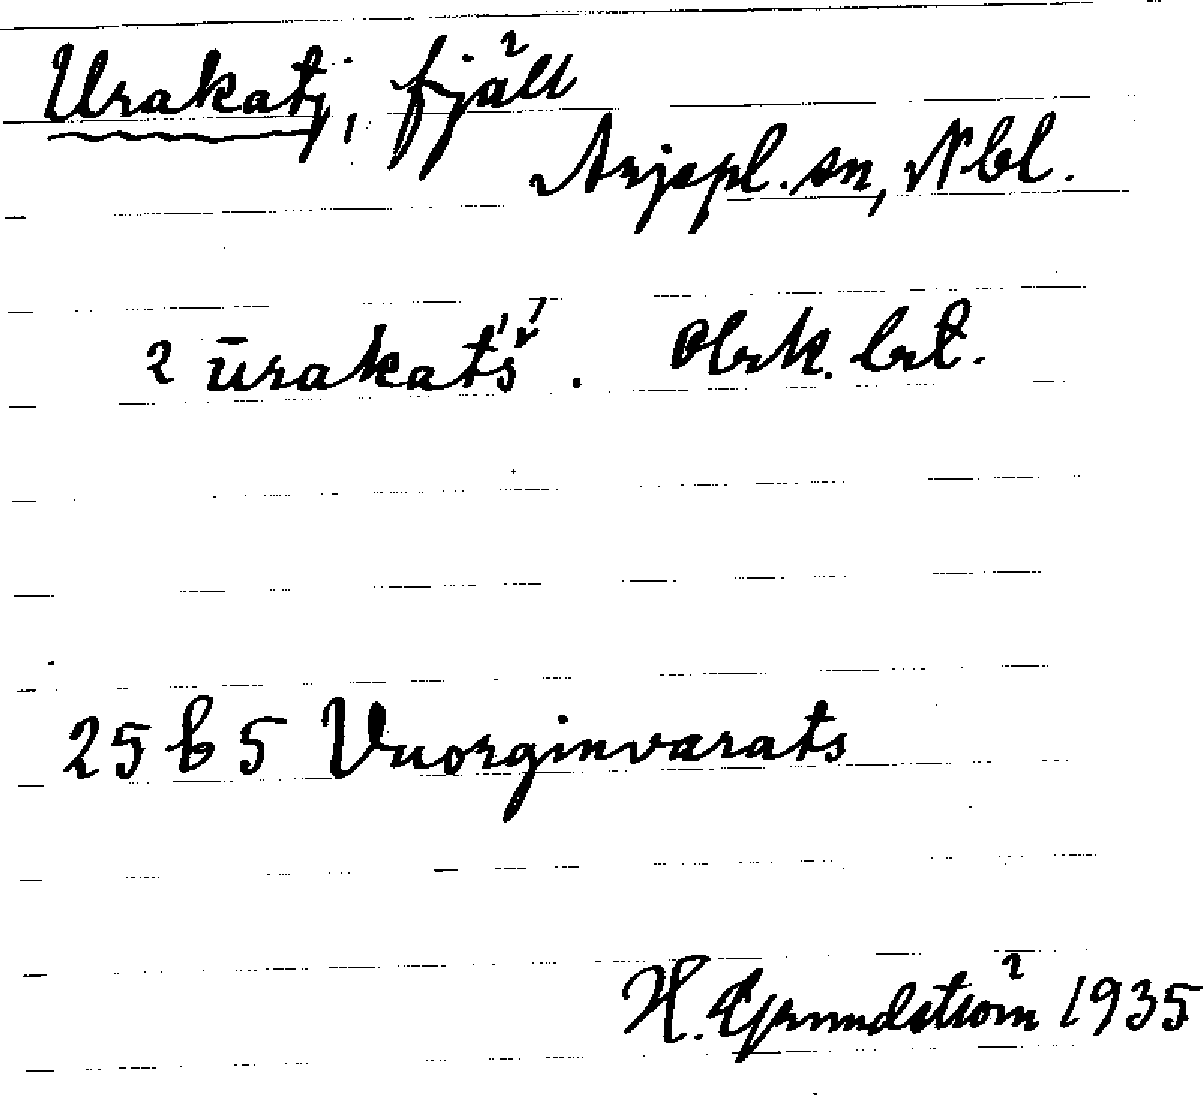 Urakatj, fjäll
Arjepl. sn, Nbl.
2 ūrakat́š́. Obrk. brt.
25 b 5 Vuorginvarats
H. Grundström 1935